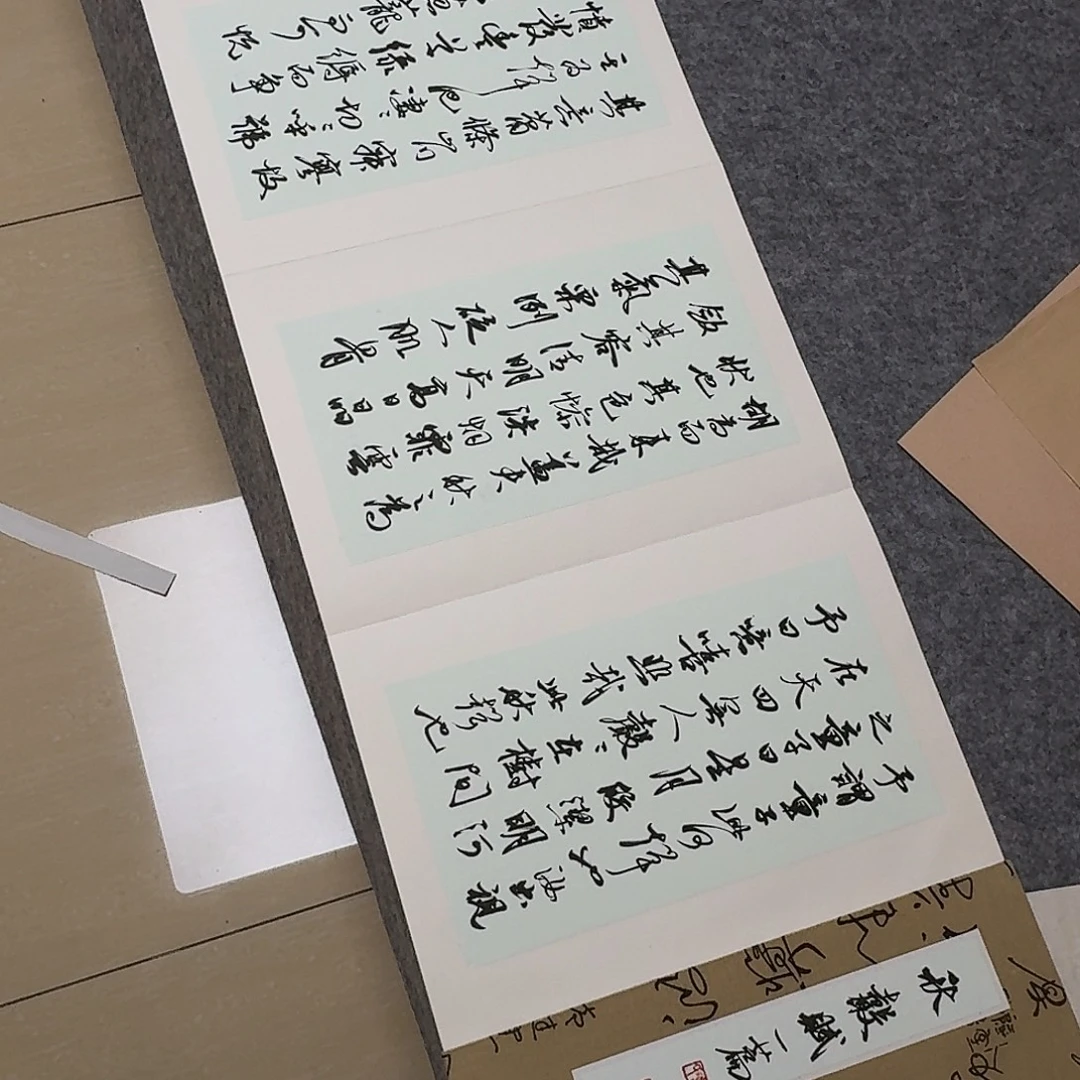 秋聲賦一篇
予謂童子此何聲也汝出視
之童子曰星月皎潔明河
在天四無人聲〻在樹間
予曰噫嘻悲哉此秋聲也
胡為而來哉蓋夫秋之為
狀也其色慘淡煙霏雲
斂其容清明天高日晶
其氣栗冽砭人肌骨
其意蕭條山川寂寥故
其為聲也淒〻切〻呼號
憤發豐草綠縟而爭
蘢可悅